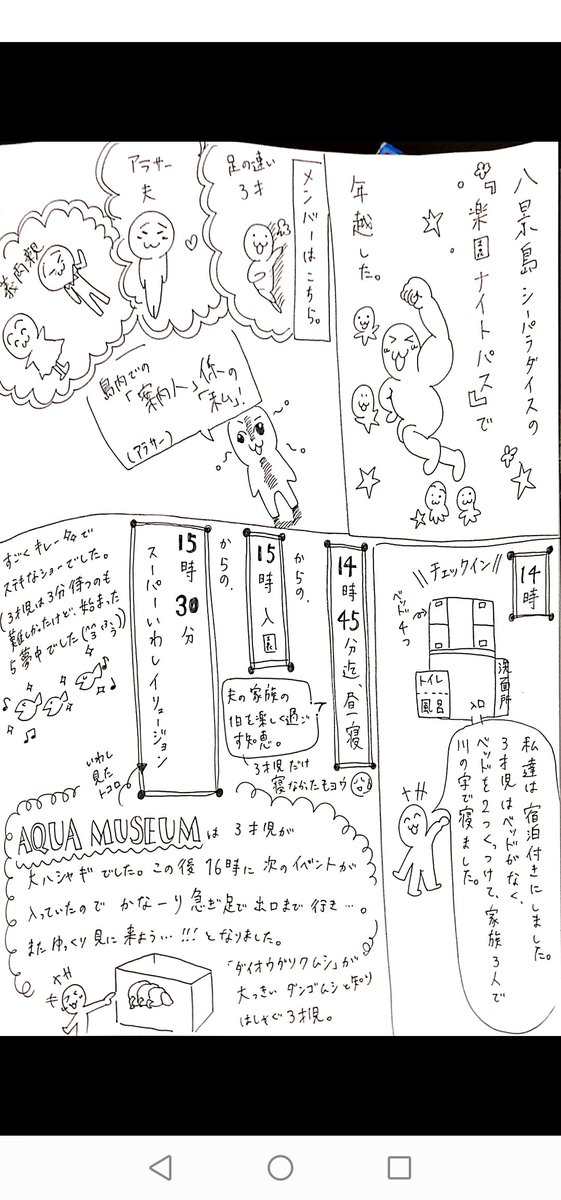 八景島シーパラダイスの
『楽園ナイトパス』で
年越した。
メンバーはこちら。
足の速い
3才
アラサー
夫
義両親
島内での
「案内人」係の
「私」!
(アラサー)
14時
\\チェックイン//
ベッド4つ
トイレ
風呂
洗面所
入口
私達は宿泊付きにしました。
3才児はベッドがなく、
ベッドを2つくっつけて、家族3人で
川の字で寝ました。
14時45分迄、昼寝
からの、
夫の家族の
1日を楽しく過ご
す知恵。
3才児だけ
寝なかったもヨウ
15時入園
からの、
15時30分
スーパーいわしイリュージョン
すごくキレー夛で
ステキなショーでした。
(3才児は3分待つのも
難しかったけど、始まった
ら夢中でした
いわし
見た
トコロ
AQUA MUSEUMは 3才児が
大ハシャギでした。この後 16時に 次のイベントが
入っていたので かなーり 急ぎ足で 出口まで 行き…。
また ゆっくり 見に 来よう…!!! となりました。
「ダイオウグソクムシ」が
大っきい ダンゴムシと知り
はしゃぐ3才児。